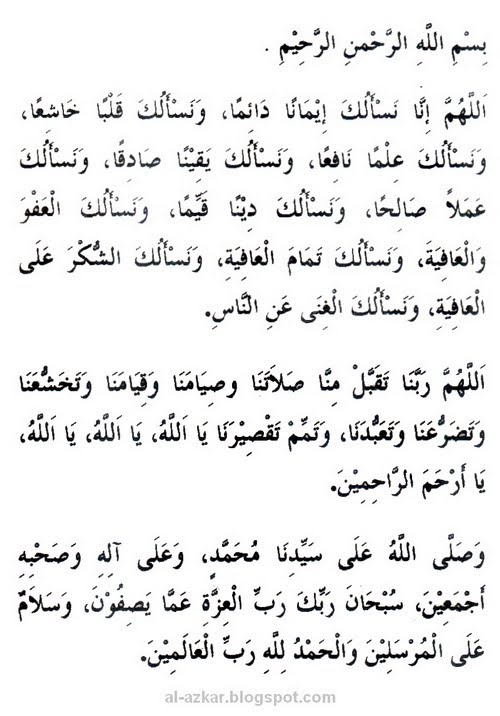 بِسْمِ اللَّهِ الرَّحْمنِ الرَّحِيْمِ .
اَللَّهُمَّ إِنَّا نَسْأَلُكَ إِيْمَانًا دَائِمًا، وَنَسْأَلُكَ قَلْبًا خَاشِعًا،
وَنَسْأَلُكَ عِلْمًا نَافِعًا، وَنَسْأَلُكَ يَقِيْنًا صَادِقًا، وَنَسْأَلُكَ
عَمَلاً صَالِحًا، وَنَسْأَلُكَ دِيْنًا قَيِّمًا، وَنَسْأَلُكَ الْعَفْوَ
وَالْعَافِيَةَ، وَنَسْأَلُكَ تَمَامَ الْعَافِيَةِ، وَنَسْأَلُكَ الشُّكْرَ عَلَى
الْعَافِيَةِ، وَنَسْأَلُكَ الْغِنَى عَنِ النَّاسِ.
اَللَّهُمَّ رَبَّنَا تَقَبَّلْ مِنَّا صَلاَتَنَا وصِيَامَنَا وَقِيَامَنَا وَتَخَشُّعَنَا
وَتَضَرُّعَنَا وَتَعَبُّدَنَا، وَتَمِّمْ تَقْصِيْرَنَا يَا اَللَّهُ، يَا اَللَّهُ، يَا اَللَّهُ،
يَا أَرْحَمَ الرَّاحِمِيْنَ.
وَصَلَّى اللَّهُ عَلَى سَيِّدِنَا مُحَمَّدٍ، وَعَلَى آلِهِ وَصَحْبِهِ
أَجْمَعِيْنَ، سُبْحَانَ رَبِّكَ رَبِّ الْعِزَّةِ عَمَّا يَصِفُوْنَ، وَسَلاَمٌ
عَلَى الْمُرْسَلِيْنَ وَالْحَمْدُ لِلَّهِ رَبِّ الْعَالَمِيْنَ.
al-azkar.blogspot.com